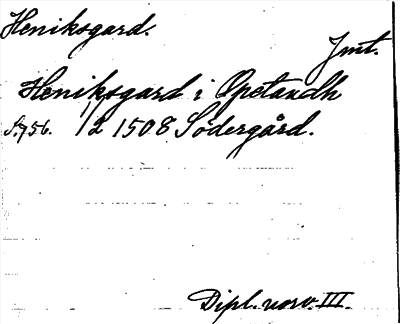 Heniksgard.
Jmt.
Heniksgard i Opetandh
S.756. 1/2 1508 Södergård.
Dipl. norv. III.